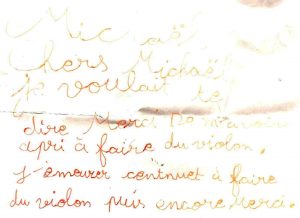 Michaël
Chers Michaël
je voulait te
dire Merci de m'avoir
apri à faire du violon.
j'émerer continuet à faire
du violon puis encore Merci.